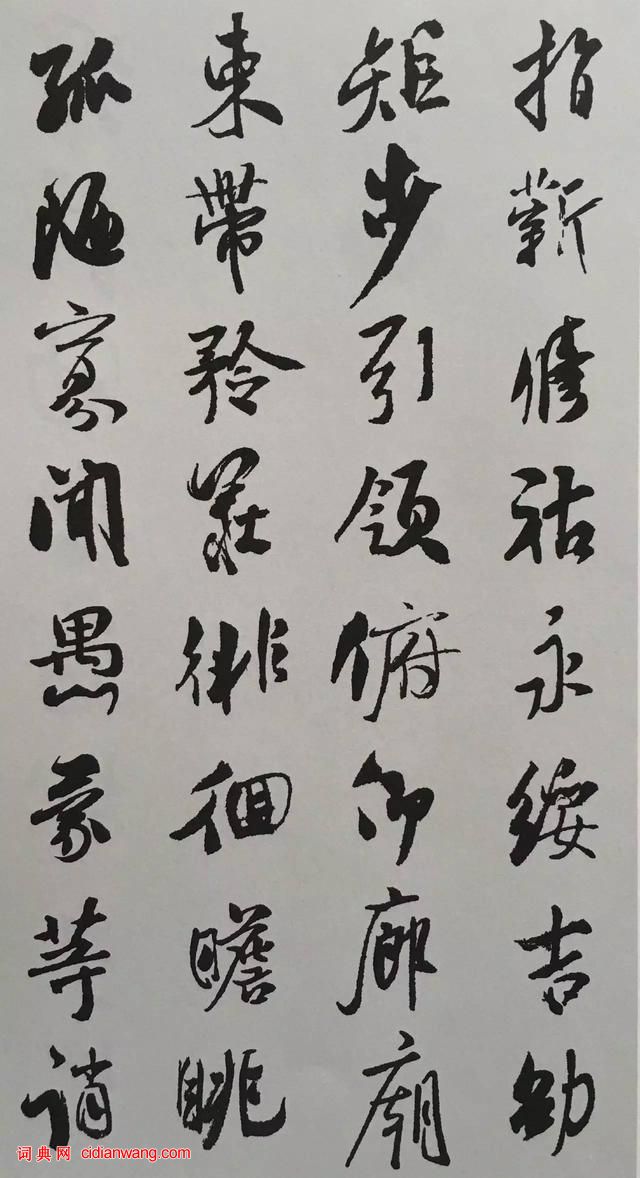 指薪修祜永绥吉劭
矩步引領俯仰廊廟
束帶矜莊徘徊瞻眺
孤陋寡聞愚蒙等誚
词典网 cidianwang.com